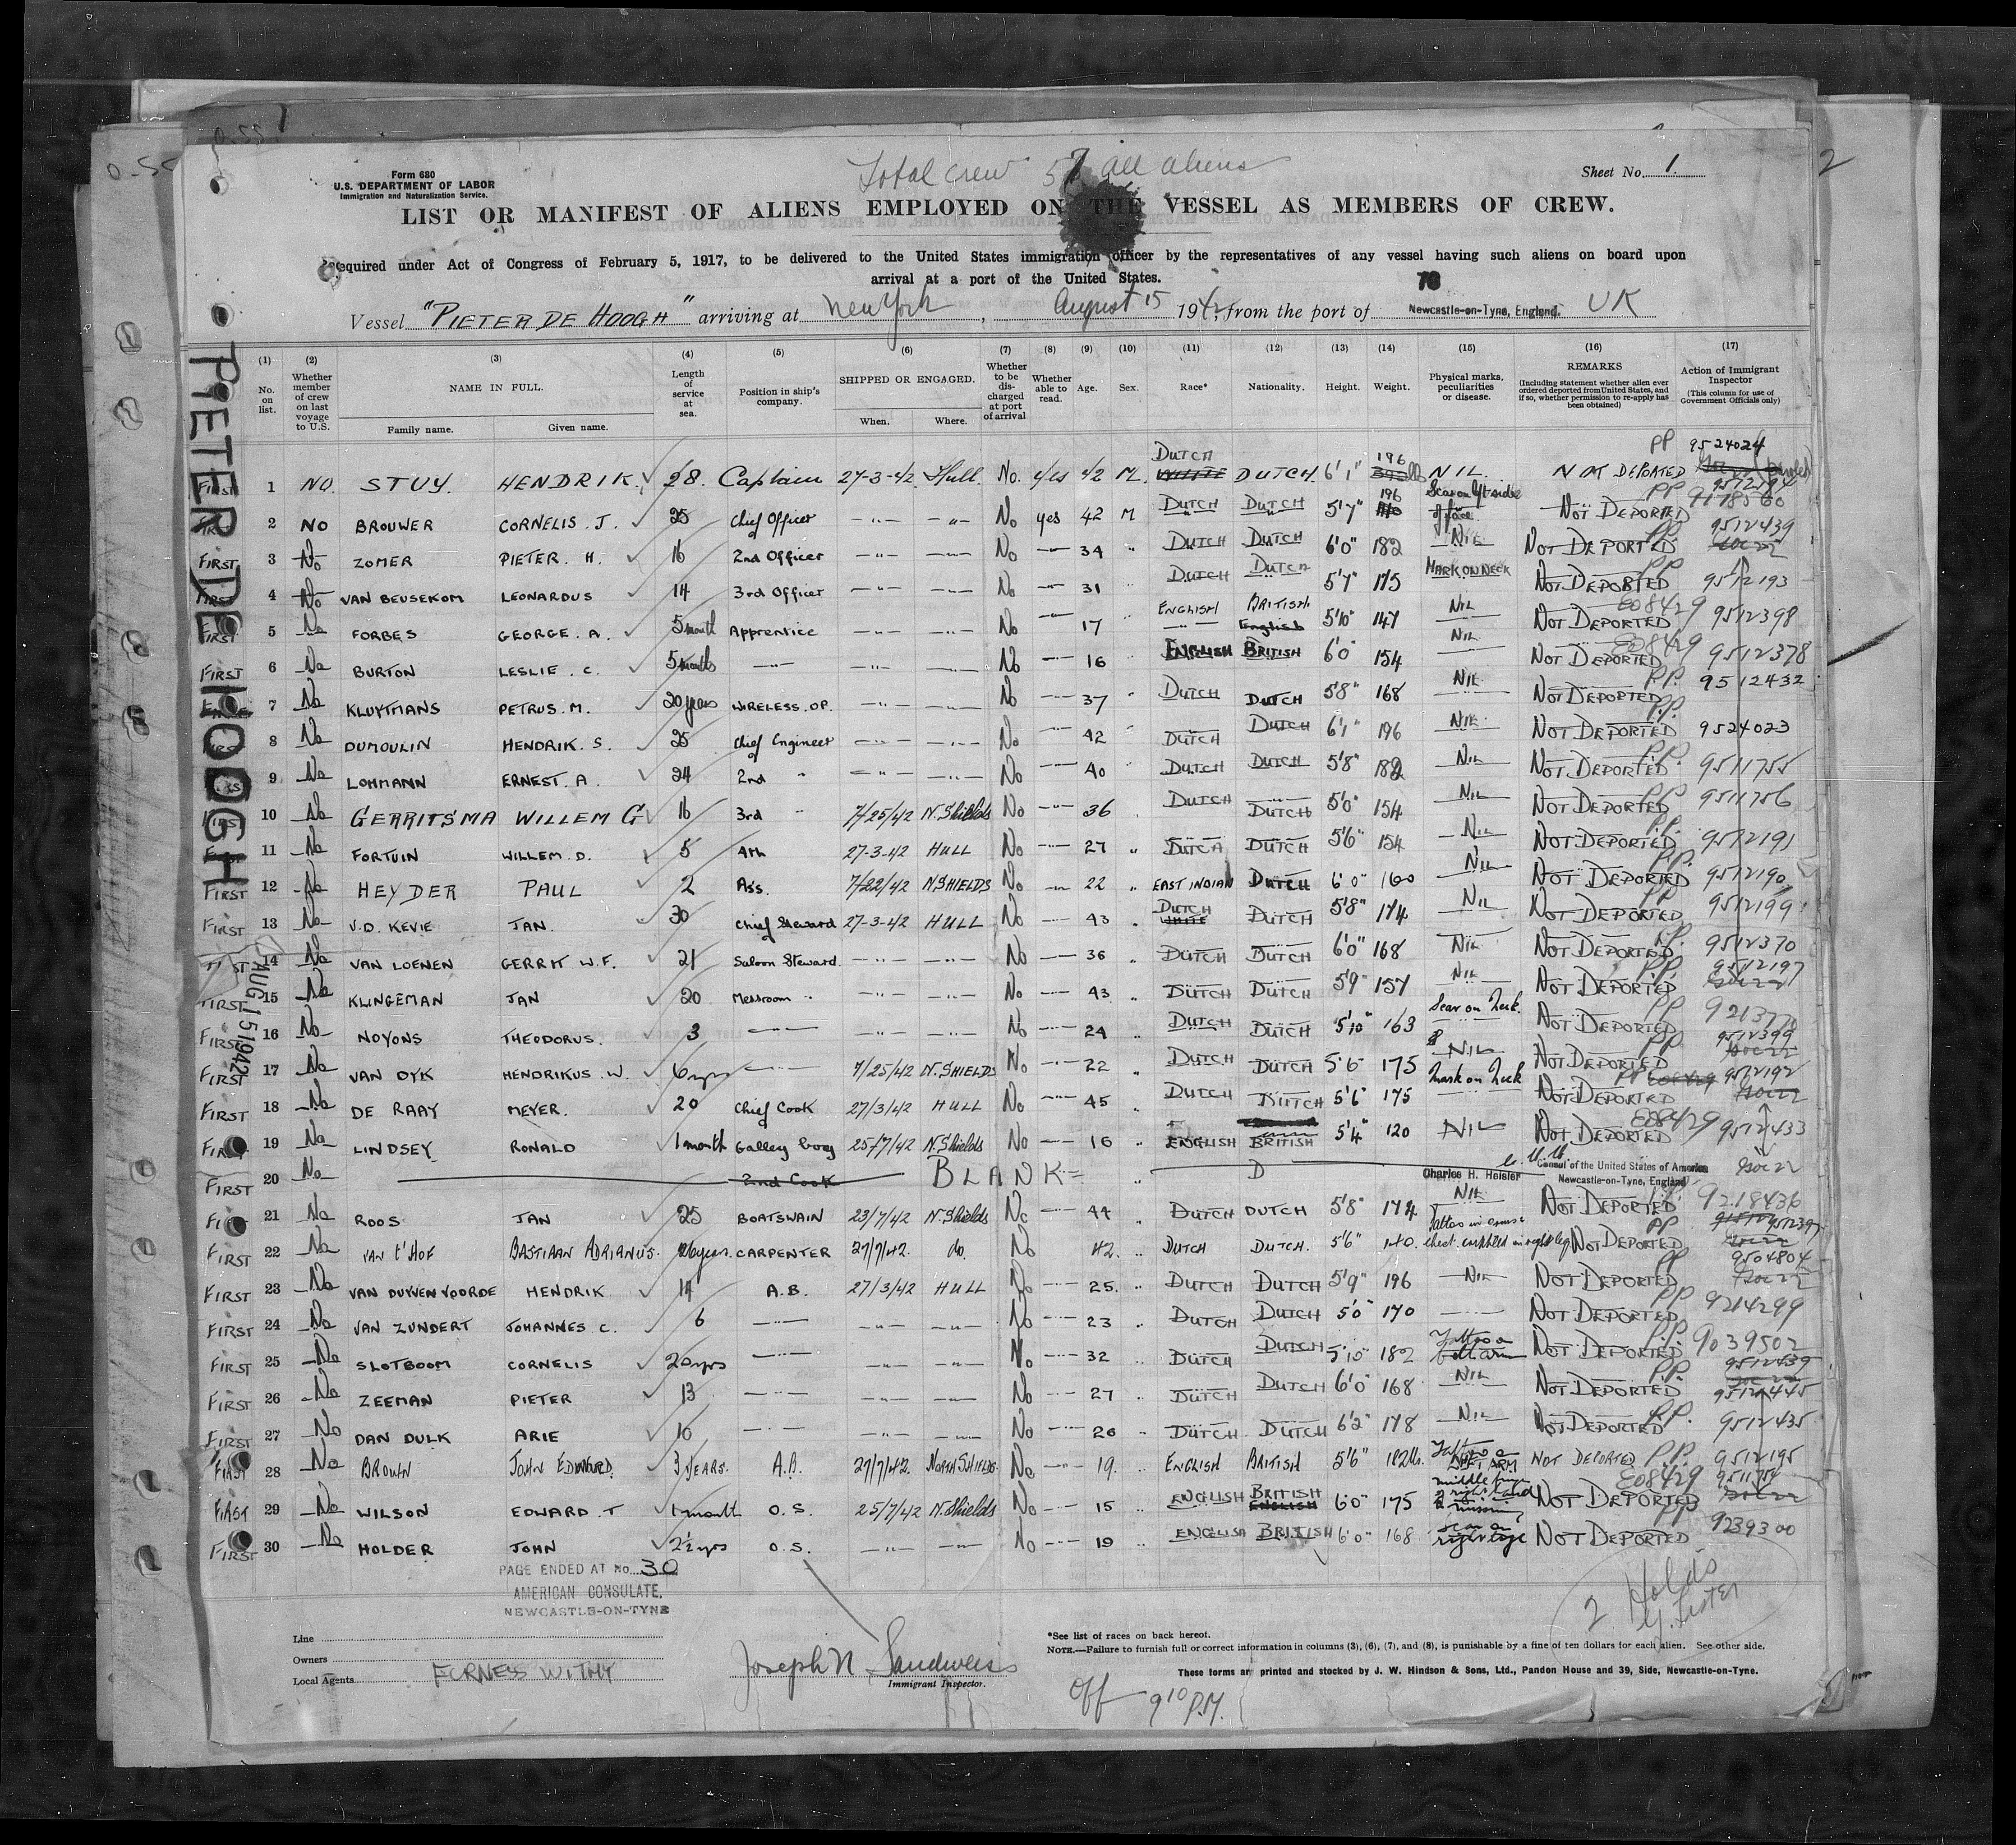 Total crew 57 all aliens
Form 680
U.S. DEPARTMENT OF LABOR
Immigration and Naturalization Service.
Sheet No. 1.
2
LIST OR MANIFEST OF ALIENS EMPLOYED ON THE VESSEL AS MEMBERS OF CREW.
Required under Act of Congress of February 5, 1917, to be delivered to the United States immigration officer by the representatives of any vessel having such aliens on board upon
arrival at a port of the United States.
Vessel "PIETER DE HOOGH" arriving at New York, August 15 1942, from the port of Newcastle-on-Tyne, England. UK
PIETER DE HOOGH
AUG 15 1942
(1) (2) (3) (4) (5) (6) (7) (8) (9) (10) (11) (12) (13) (14) (15) (16) (17)
No. on list. Whether member of crew on last voyage to U.S. NAME IN FULL. Family name. Given name. Length of service at sea. Position in ship's company. SHIPPED OR ENGAGED. When. Where. Whether to be discharged at port of arrival Whether able to read. Age. Sex. Race* Nationality. Height. Weight. Physical marks, peculiarities or disease. REMARKS (Including statement whether alien ever ordered deported from United States, and if so, whether permission to re-apply has been obtained) Action of Immigrant Inspector (This column for use of Government Officials only)
FIRST 1 NO STUY. HENDRIK. 28. Captain 27-3-42 Hull. No. yes 42 M. DUTCH DUTCH 6'1" 196 NIL. NOT DEPORTED PP 9524024
2 NO BROUWER CORNELIS. J. 25 Chief Officer -"- -"- No yes 42 M DUTCH DUTCH 5'7" 196 Scar on left side of face. NOT DEPORTED PP
FIRST 3 No ZOMER PIETER. H. 16 2nd Officer -"- -"- No -"- 34 " DUTCH DUTCH 6'0" 182 NIL NOT DEPORTED PP. 9512439
FIRST 4 No VAN BEUSEKOM LEONARDUS 14 3rd Officer -"- -"- No -"- 31 " DUTCH DUTCH 5'7" 175 MARK ON NECK NOT DEPORTED PP. 9512193
FIRST 5 No FORBES GEORGE. A. 5 month Apprentice -"- -"- No -"- 17 " ENGLISH BRITISH 5'10" 147 NIL NOT DEPORTED E08429 9512398
FIRST 6 No BURTON LESLIE. C. 5 months -"- -"- -"- No -"- 16 ENGLISH BRITISH 6'0 154 NIL NOT DEPORTED E08429 9512378
7 No KLUYTMANS PETRUS. M. 20 years WIRELESS. OP. -"- -"- No -"- 37 " DUTCH DUTCH 5'8" 168 NIL NOT DEPORTED P.P. 9512432
FIRST 8 No DUMOULIN HENDRIK. S. 25 Chief Engineer -"- -"- No -"- 42 " DUTCH DUTCH 6'1" 196 NIL NOT DEPORTED P.P. 9524023
9 No LOHMANN ERNEST. A. 24 2nd " -"- -"- No -"- 40 DUTCH DUTCH 5'8" 182 NIL NOT DEPORTED P.P. 9511755
FIRST 10 No GERRITSMA WILLEM G 16 3rd " 7/25/42 N. Shields No -"- 36 DUTCH DUTCH 5'0" 154 NIL NOT DEPORTED P.P. 9511756
11 No FORTUIN WILLEM. D. 5 4th 27-3-42 HULL No -"- 27 " DUTCH DUTCH 5'6" 154 NIL NOT DEPORTED P.P. 9512191
FIRST 12 No HEYDER PAUL 2 Ass. 7/22/42 N SHIELDS No -"- 22 " EAST INDIAN DUTCH 6'0" 160 NIL NOT DEPORTED P.P. 9512190
FIRST 13 No V.D. KEVIE JAN. 30 Chief Steward 27-3-42 HULL No -"- 43 " DUTCH DUTCH 5'8" 174 NIL NOT DEPORTED PP 9512199
FIRST 14 No VAN LOENEN GERRIT W.F. 21 Saloon Steward. -"- -"- No -"- 36 " DUTCH DUTCH 6'0" 168 NIL NOT DEPORTED P.P. 9512370
FIRST 15 No KLINGEMAN JAN 20 Messroom " -"- -"- No -"- 43 " DUTCH DUTCH 5'9" 157 NIL NOT DEPORTED P.P. 9512197
FIRST 16 No NOYONS THEODORUS. 3 -"- -"- -"- No -"- 24 " DUTCH DUTCH 5'10" 163 Scar on Neck. NOT DEPORTED PP
FIRST 17 No VAN DYK HENDRIKUS. W. 6 yrs -"- 7/25/42 N. SHIELDS No -"- 22 " DUTCH DUTCH 5'6" 175 NIL NOT DEPORTED PP 9512399
FIRST 18 No DE RAAY MEYER. 20 Chief Cook 27/3/42 HULL No -"- 45 " DUTCH DUTCH 5'6" 175 Mark on Neck NOT DEPORTED PP 9512192
FIRST 19 No LINDSEY RONALD 1 month Galley boy 25/7/42 N. Shields No -"- 16 " ENGLISH BRITISH 5'4" 120 NIL NOT DEPORTED E08429 9512433
FIRST 20 No 2nd Cook BLANK Charles H. Heisler Consul of the United States of America Newcastle-on-Tyne, England
21 No ROOS JAN 25 BOATSWAIN 23/7/42 N. Shields No -"- 44 " DUTCH DUTCH 5'8" 174 NIL NOT DEPORTED P.P. 9218436
FIRST 22 No VAN T'HOF BASTIAAN ADRIANUS. 26 years. CARPENTER 27/7/42. do. No 42. " DUTCH DUTCH. 5'6" 140. NOT DEPORTED PP
FIRST 23 No VAN DUYVENVOORDE HENDRIK 14 A.B. 27/3/42 HULL No -"- 25. " DUTCH DUTCH 5'9" 196 NIL NOT DEPORTED PP 9504804
FIRST 24 No VAN ZUNDERT JOHANNES C. 6 -"- -"- -"- No -"- 23 " DUTCH DUTCH 5'0" 170 -"- NOT DEPORTED P.P. 9214299
FIRST 25 No SLOTBOOM CORNELIS 20 yrs -"- -"- -"- No -"- 32 " DUTCH DUTCH 5'10" 182 NOT DEPORTED P.P. 9039502
FIRST 26 No ZEEMAN PIETER 13 -"- -"- -"- No -"- 27 " DUTCH DUTCH 6'0" 168 NIL NOT DEPORTED P.P.
FIRST 27 No DAN DULK ARIE 10 -"- -"- -"- No -"- 26 " DUTCH DUTCH 6'2" 178 NIL NOT DEPORTED P.P. 9512435
FIRST 28 No BROWN JOHN EDWARD. 3 YEARS. A.B. 27/7/42. NORTH SHIELDS. No -"- 19. " ENGLISH BRITISH 5'6" 182 lbs. Tattoo LEFT ARM NOT DEPORTED P.P. 9512195
FIRST 29 No WILSON EDWARD. T 1 month O.S. 25/7/42 N. Shields No -"- 15 " ENGLISH BRITISH 6'0" 175 middle finger right hand missing NOT DEPORTED E08429
FIRST 30 No HOLDER JOHN 2½ yrs O.S. -"- -"- No -"- 19 " ENGLISH BRITISH 6'0" 168 scar on right eye NOT DEPORTED PP 9239300
PAGE ENDED AT No. 30
AMERICAN CONSULATE,
NEWCASTLE-ON-TYNE
Line
Owners
Local Agents FURNESS WITHY
Joseph N Sandweiss
Immigrant Inspector.
*See list of races on back hereof.
NOTE.—Failure to furnish full or correct information in columns (3), (6), (7), and (8), is punishable by a fine of ten dollars for each alien. See other side.
These forms are printed and stocked by J. W. Hindson & Sons, Ltd., Pandon House and 39, Side, Newcastle-on-Tyne.
Off 9 10 P.M.